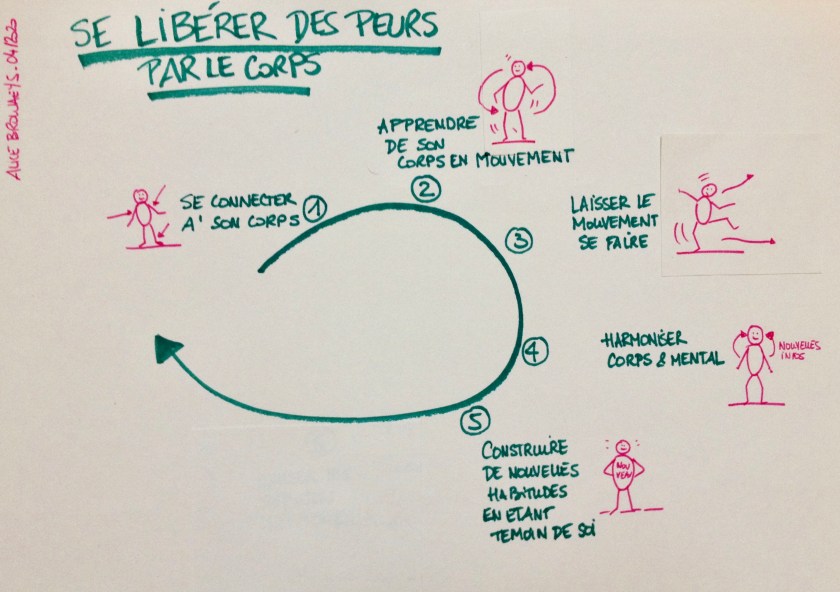 SE LIBÉRER DES PEURS
PAR LE CORPS
ALICE BROUHEYS. 04/2020
①
SE CONNECTER
A' SON CORPS
②
APPRENDRE
DE SON
CORPS EN MOUVEMENT
③
LAISSER LE
MOUVEMENT
SE FAIRE
④
HARMONISER
CORPS & MENTAL
NOUVELLES
INFOS
⑤
CONSTRUIRE
DE NOUVELLES
HABITUDES
EN ETANT
TEMOIN DE SOI
NOU
VEAU